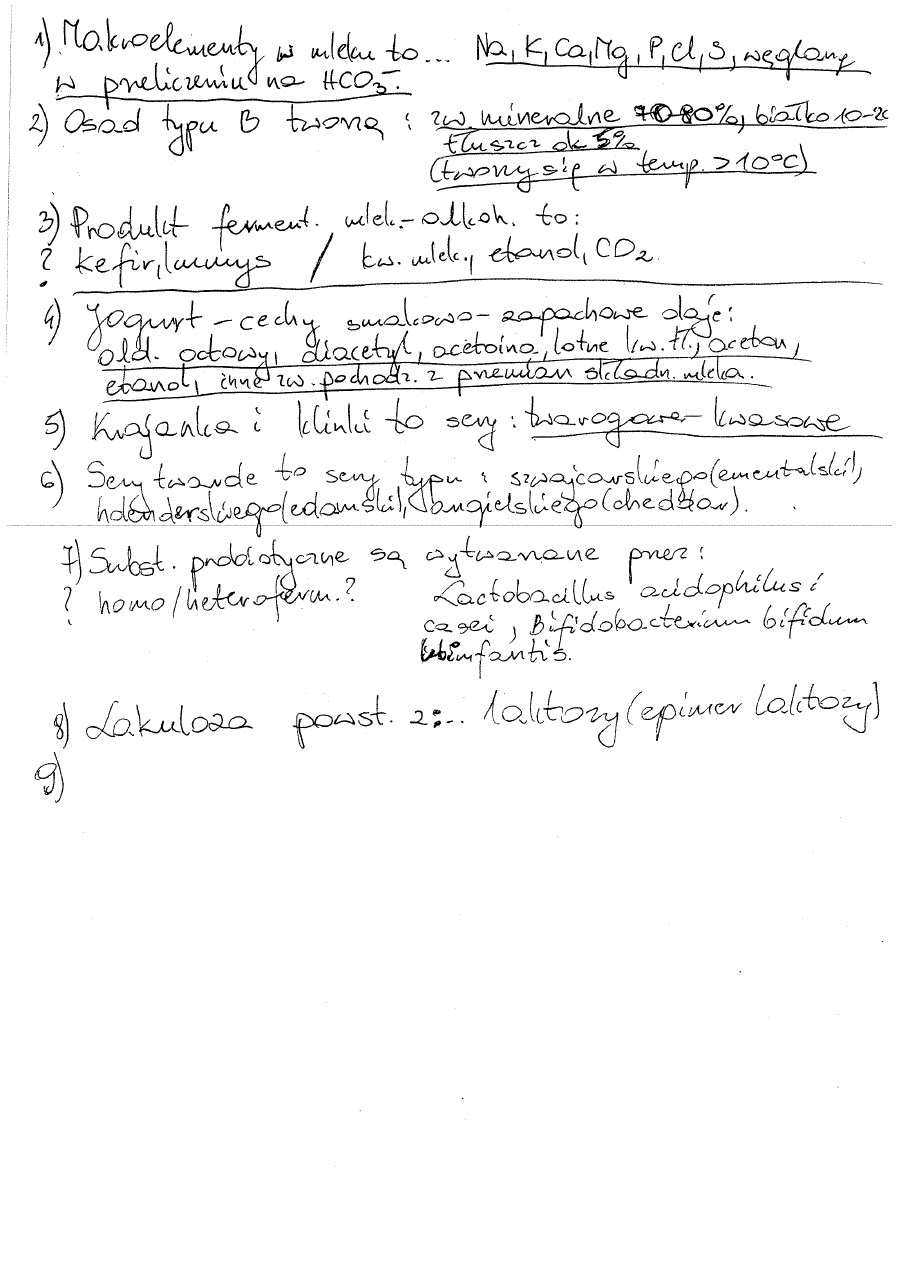 1) Makroelementy w mleku to... Na, K, Ca, Mg, P, Cl, S, węglany
w przeliczeniu na HCO3-.
2) Osad typu B tworzą: zw. mineralne 70-80%, białko 10-20
tłuszcz ok 5%
(tworzy się w temp. >10°C)
3) Produkt ferment. mlek.-alkoh. to:
? kefir, kumys / kw. mlek., etanol, CO2.
4) Jogurt - cechy smakowo-zapachowe daje:
ald. octowy, diacetyl, acetoina, lotne kw. tł., aceton,
etanol, inne zw. pochodz. z przemian składn. mleka.
5) Krajanka i klinki to sery: twarogowe - kwasowe
6) Sery twarde to sery typu: szwajcarskiego (ementalski),
holenderskiego (edamski), angielskiego (cheddar).
7) Subst. probiotyczne są wytwarzane przez:
? homo/heteroferm.? Lactobacillus acidophilus i
casei, Bifidobacterium bifidum
infantis.
8) Lakuloza powst. z:.. laktozy (epimer laktozy)
9)